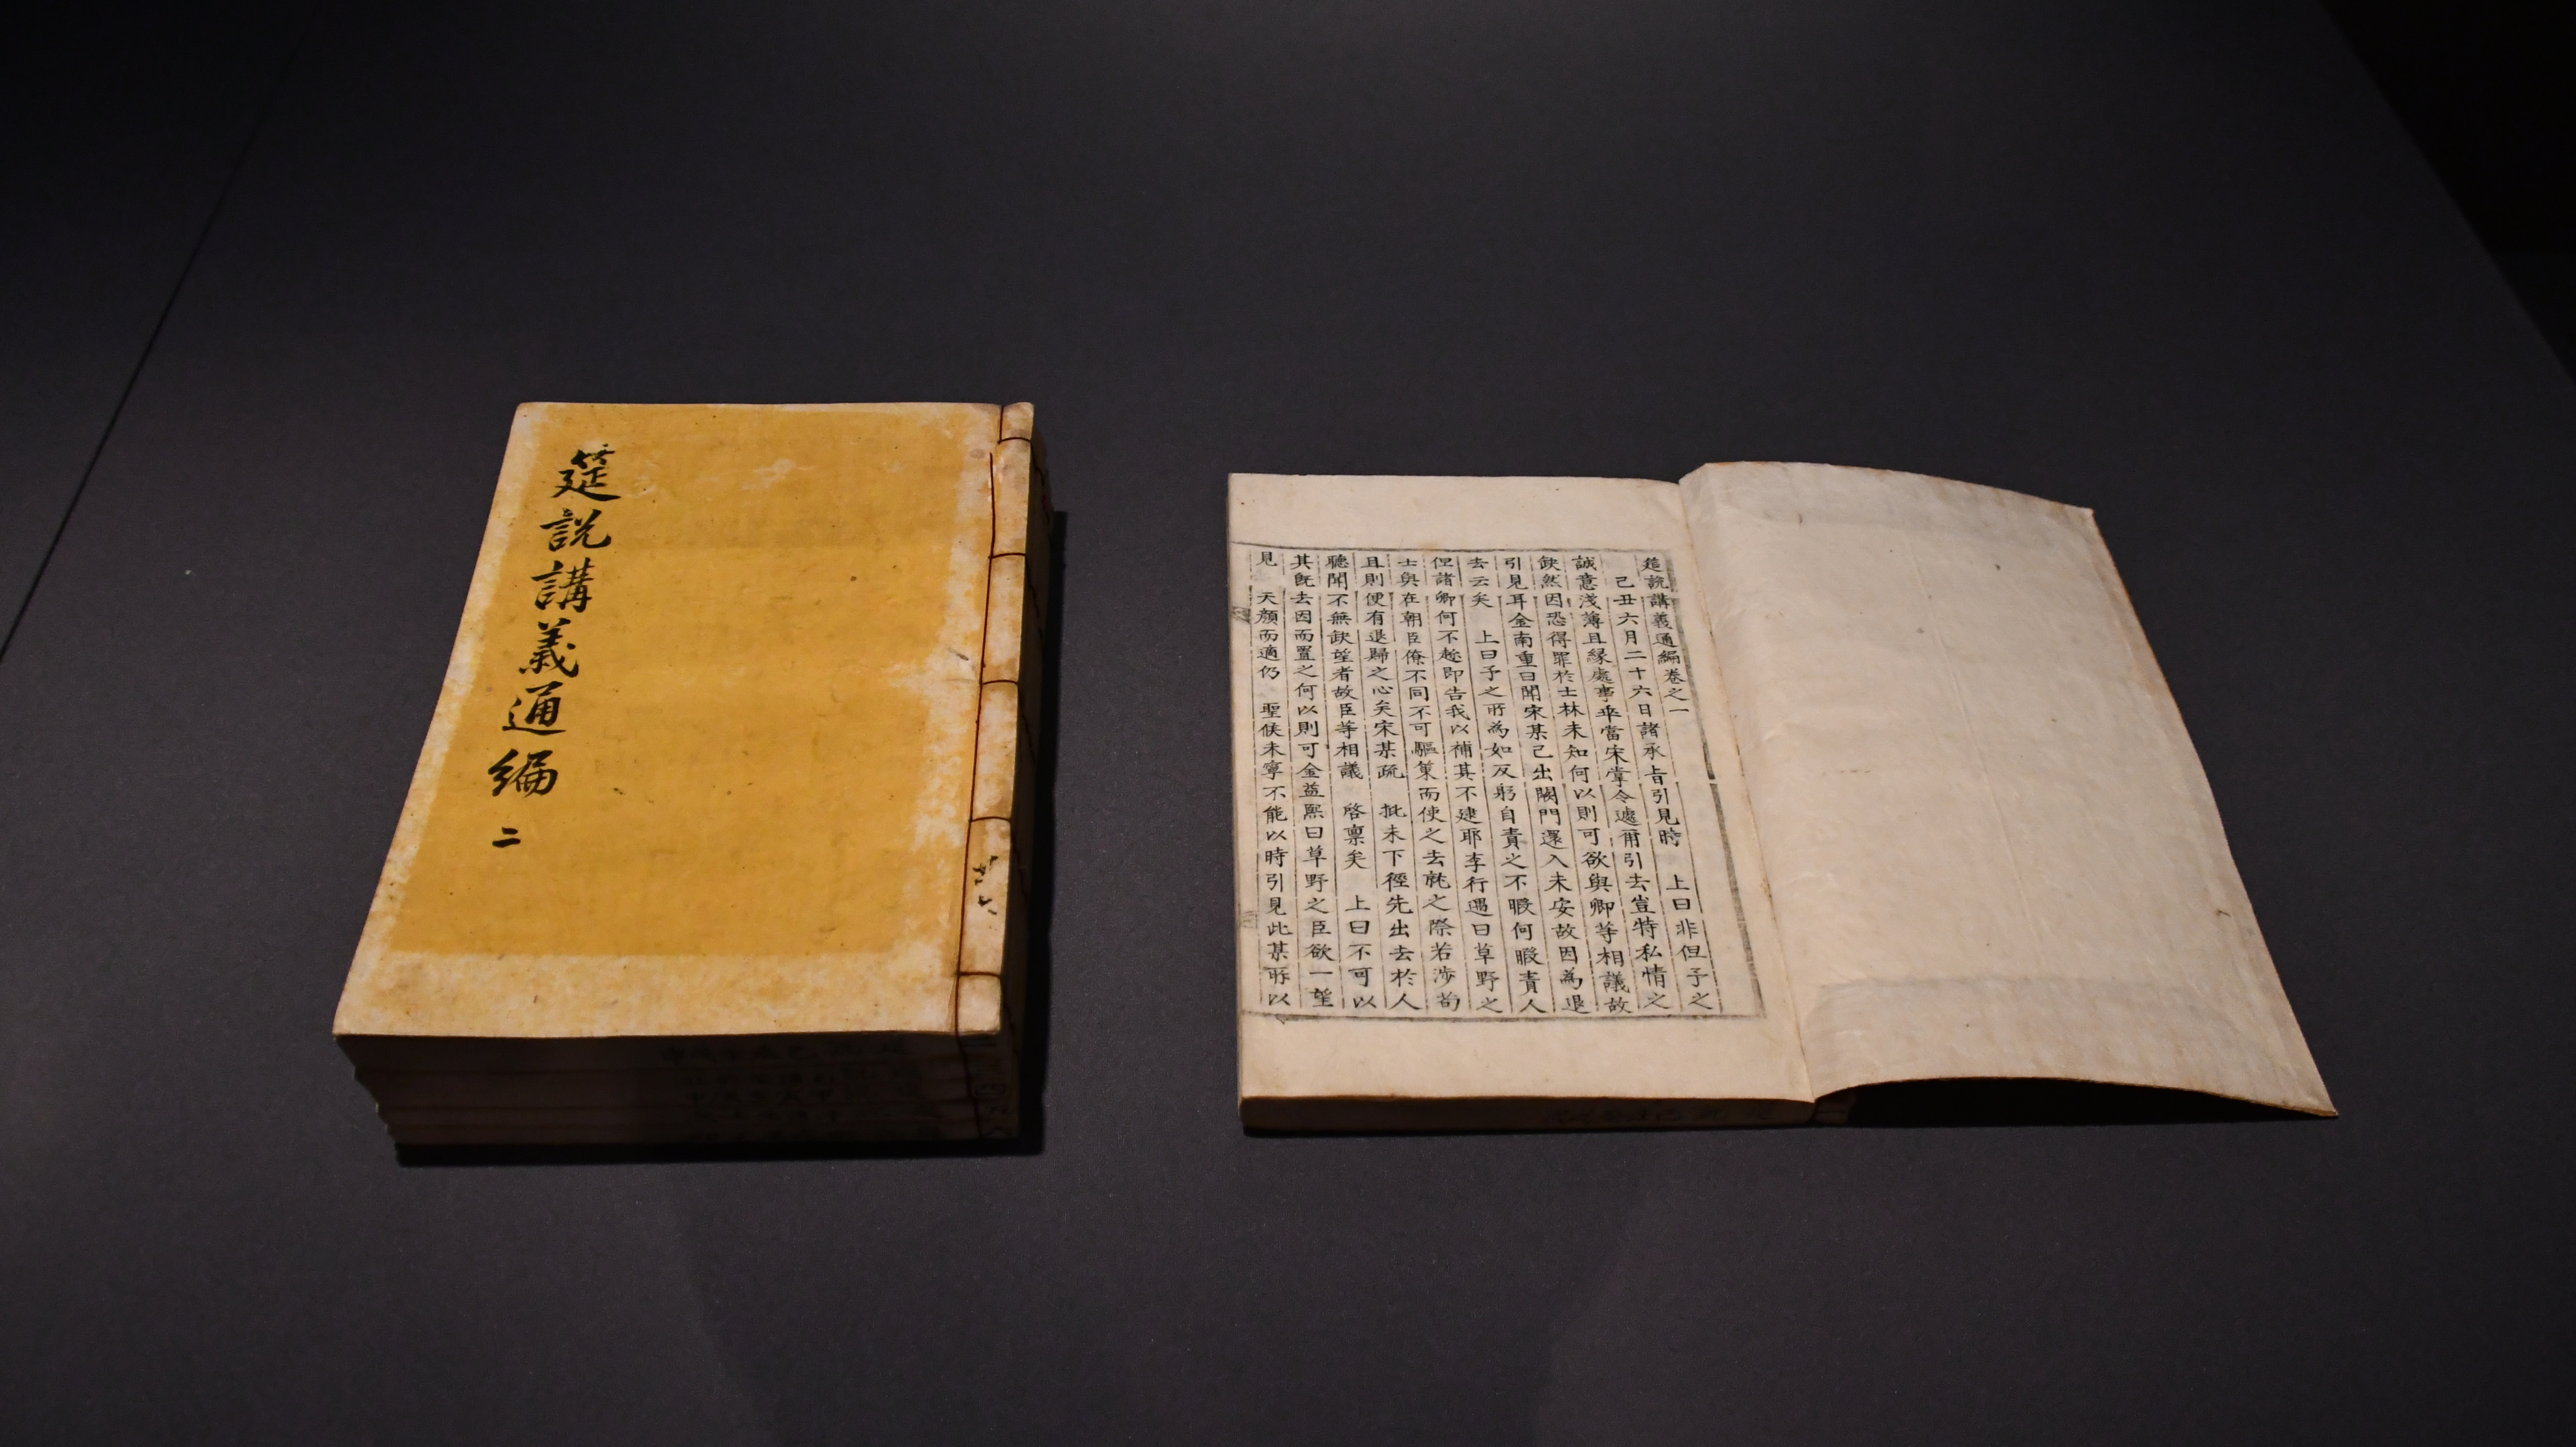 筵說講義通編 二
筵說講義通編卷之一
己丑六月二十六日諸承旨引見時 上曰非但予之
誠意淺薄且緣處事乖當宋掌令遽爾引去豈特私情之
缺然因恐得罪於士林未知何以則可欲與卿等相議故
引見耳金南重曰聞宋某已出闕門還入未安故因爲退
去云矣 上曰予之所為如反躬自責之不暇何暇責人
但諸卿何不趁即告我以補其不逮耶李行遇曰草野之
士與在朝臣僚不同不可驅策而使之去就之際若涉苟
且則便有退歸之心矣宋某疏 批未下徑先出去於人
聽聞不無缺望者故臣等相議 啓稟矣 上曰不可以
其旣去因而置之何以則可金益熙曰草野之臣欲一望
見 天顏而適仍 聖候未寧不能以時引見此某所以